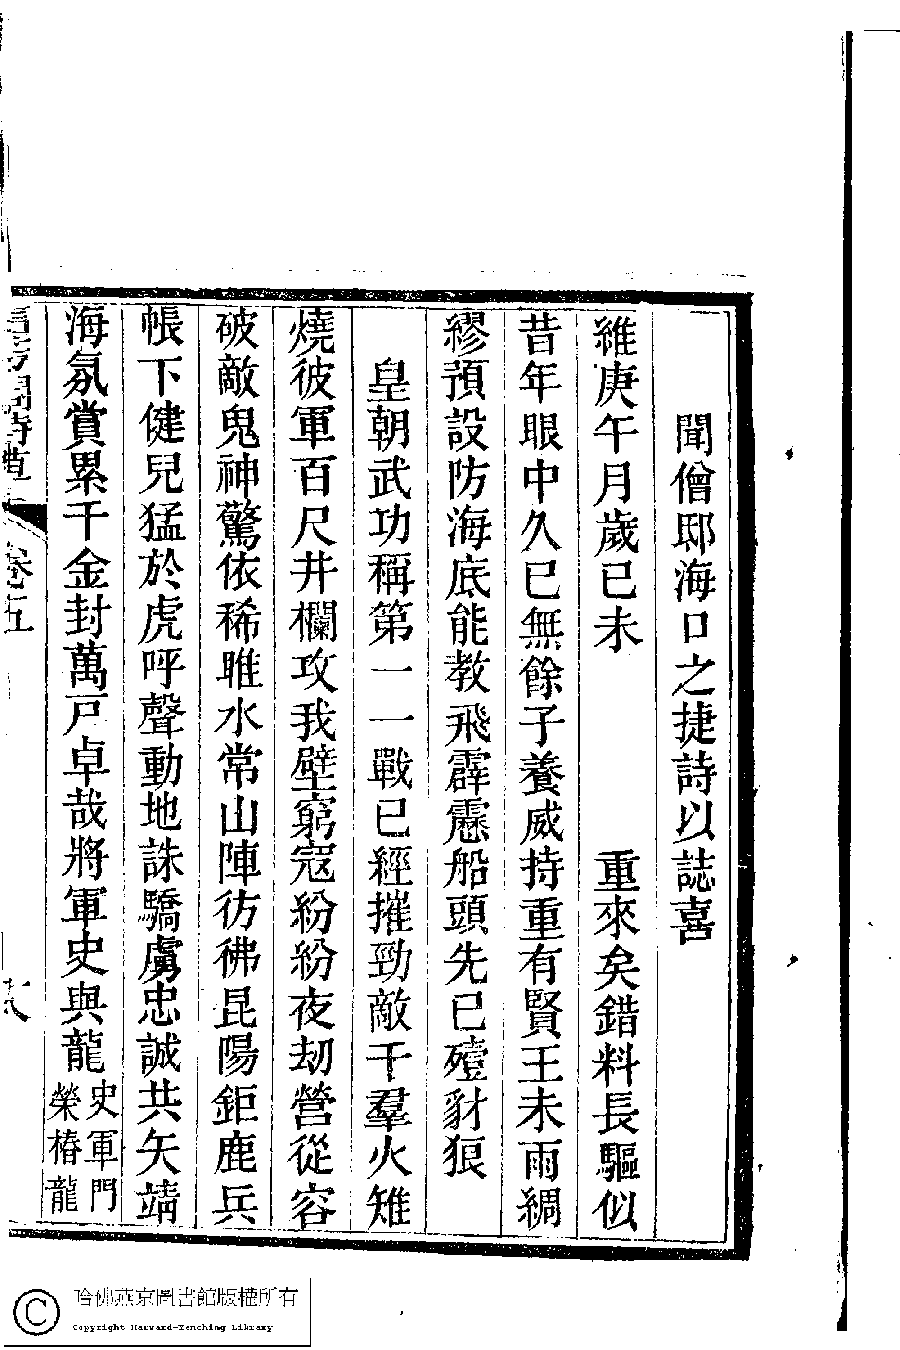 聞僧邸海口之捷詩以誌喜
維庚午月歲已未　　　　重來矣錯料長驅似
昔年眼中久已無餘子養威持重有賢王未雨綢
繆預設防海底能教飛霹靂船頭先已殪豺狼
皇朝武功稱第一一戰已經摧勁敵千羣火雉
燒彼軍百尺井欄攻我壁窮寇紛紛夜刼營從容
破敵鬼神驚依稀睢水常山陣彷彿昆陽鉅鹿兵
帳下健兒猛於虎呼聲動地誅驕虜忠誠共矢靖
海氛賞累千金封萬戸卓哉將軍史與龍史軍門
榮椿龍
卷五
哈佛燕京圖書館版權所有
Copyright Harvard-Yenching Library